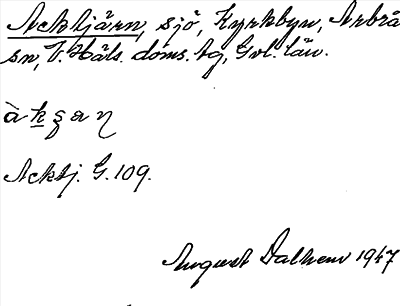 Acktjärn, sjö, Kyrkbyn, Arbrå
sn, V. Häls. doms. tg, Gvl. län.
Acktj. G. 109.
August Dalhem 1947